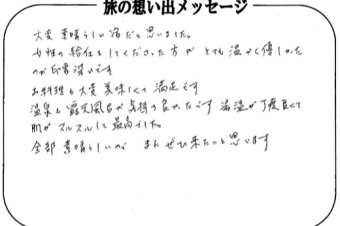 旅の想い出メッセージ
大変 素晴らしい宿だと思いました。
女性の給仕をしてくださった方が とても温かく優しかった
のが印象深いです
お料理も大変美味しくて満足です
温泉も露天風呂が気持ち良かったです 湯温が丁度良くて
肌がスルスルして最高でした。
全部 素晴らしいので またぜひ来たいと思います